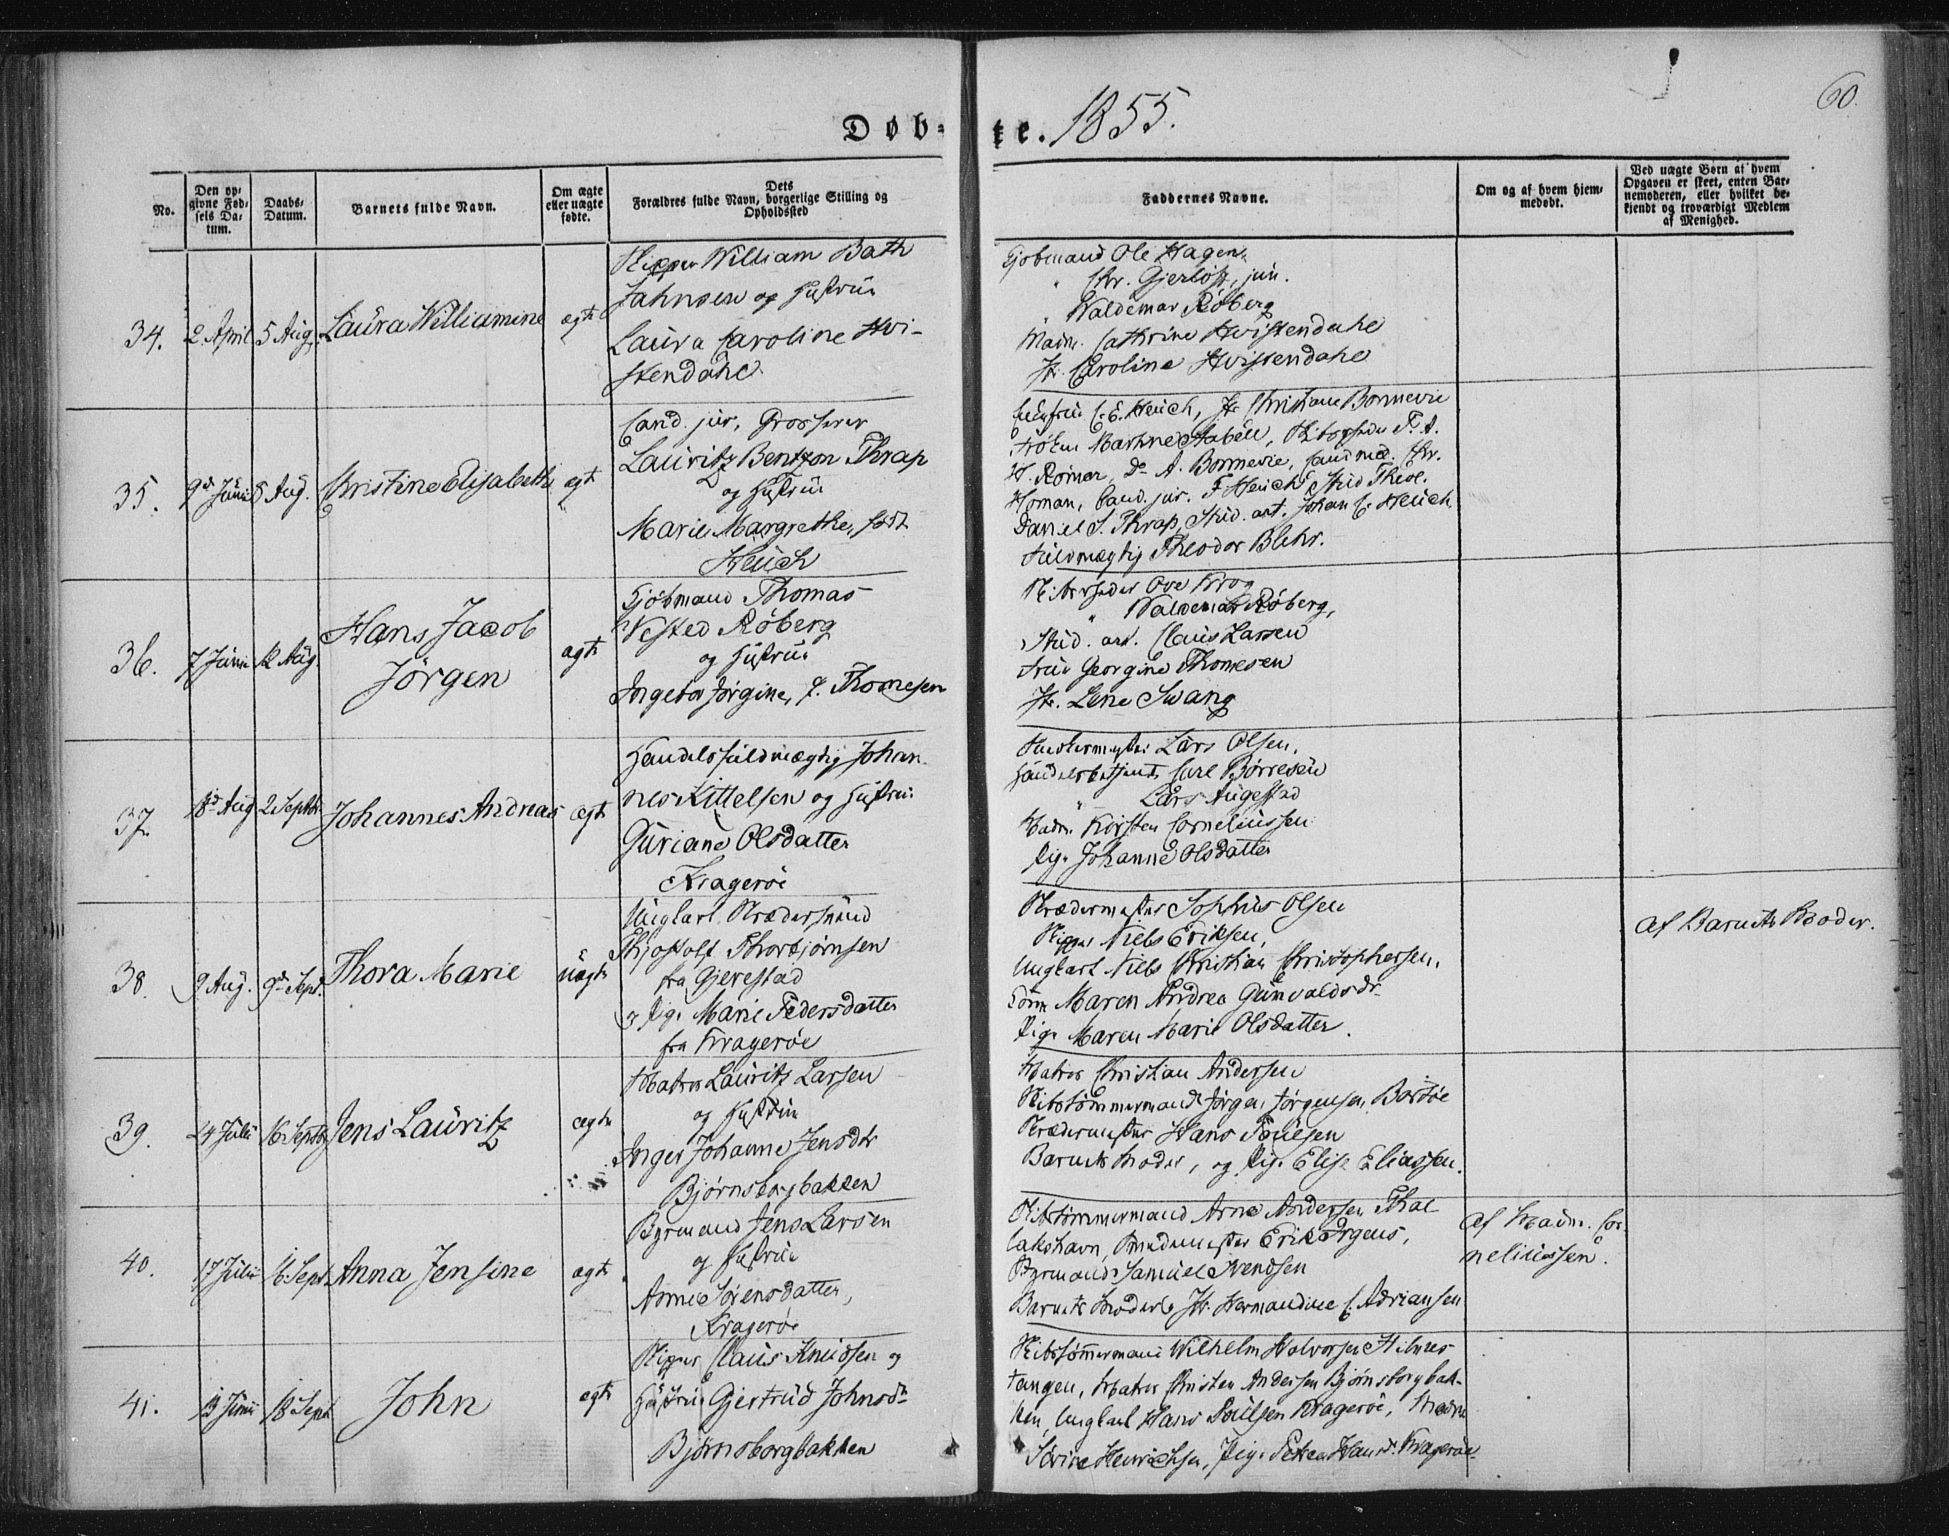 60.
Døb-te. 1855.
No.
Den op-
givne Fød-
sels Da-
tum.
Daabs-
Datum.
Barnets fulde Navn.
Om ægte
eller uægte
fødte.
Dets
Forældres fulde Navn, borgerlige Stilling og
Opholdssted
Faddernes Navne.
Om og af hvem hjem-
medøbt.
Ved uægte Børn af hvem
Opgaven er skeet, enten Bar-
nemoderen, eller hvilket be-
kjendt og troværdigt Medlem
af Menighed.
34.
2 April
5 Aug.
Laura Williamine
ægte
Skipper William Bath
Jahnsen og Hustrue
Laura Caroline Hvi-
stendahl.
Kjøbmand Ole Hagen,
" Chr. Gjerløff, jun.
" Waldemar Røberg
Madm. Cathrine Hvistendahl
Jfr. Caroline Hvistendahl
35.
9d Juni
5 Aug.
Christine Elisabeth
ægte
Cand. jur. Grosserer
Lauritz Bentzon Thrap
og Hustrue
Marie Margrethe, født
Heuch
C. E. Heuch, Jfr. Christiane Bonnevie
Frøken Marthine Stabell, Skibsreder T. A.
H. Rømer, Do A. Bonnevie, Cand. med. Chr.
Homan, Cand. jur. F. Heuch, Stud. Theol.
Daniel S. Thrap, Stud. art. Johan C. Heuch
Fuldmægtig Theodor Blehr.
36.
7 Juni
12 Aug.
Hans Jacob
Jörgen
ægte
Kjøbmand Thomas
Vested Røberg
og Hustrue
Ingebor Jørgine, f. Thomesen
Skibsreder Ove Krog
" Waldemar Røberg,
Stud. art. Claus Larsen
Frue Georgine Thomesen
Jfr. Lene Svang
37.
18d Aug
2 Septbr
Johannes Andreas
ægte
Handelsfuldmægtig Johan-
nes Kittelsen og Hustrue
Guriane Olsdatter
Kragerøe
Lars Olsen,
Handelsbetjent Carl Børresen
" Lars Augestad
Madm. Kirsten Corneliussen
Pige Johanne Olsdatter
38.
9 Aug.
9d Sept.
Thora Marie
uægte
Ungkarl Skrædersvend
Thjostolf Thorbjørnsen
fra Gjerestad
og Pige Marie Pedersdatter
fra Kragerøe
Skrædermester Sophus Olsen
Skipper Niels Eriksen,
Ungkarl Niels Christian Christophersen.
Maren Andrea Gunvaldsdr
Pige Maren Marie Olsdatter.
af Barnets Moder.
39.
24 Juli
16 Septbr
Jens Lauritz
ægte
Matros Lauritz Larsen
og Hustrue
Inger Johanne Jensdtr
Bjørnsborgbakken
Matros Christian Andersen
Skibstømmermand Jørgen Jørgensen Barsøe
Skrædermester Hans Poulsen
Barnets Moder, og Pige Elise Eliassen.
40.
17 Juli
16 Sept.
Anna Jensine
ægte
Styrmand Jens Larsen
og Hustrue
Anne Sørensdatter,
Kragerøe
Skibstømmermand Arne Andersen Thal-
lakshavn, Smedmester Erik Irgens,
Styrmand Samuel Svendsen
Barnets Moder & Jfr. Hermandine C. Adriansen
af Madm. Cor-
neliussen.
41.
13 Juni
18 Sept
John
ægte
Skipper Claus Knudsen og
Hustrue Gjertrud Johnsdr
Bjørnsborgbakken
Skibstømmermand Wilhelm Halvorsen Holmes-
tangen, Matros Christen Andersen Bjørnsborgbak-
ken, Ungkarl Hans Poulsen Kragerøe, Madm
Henrichsen, Pige Hansdr. Kragerøe